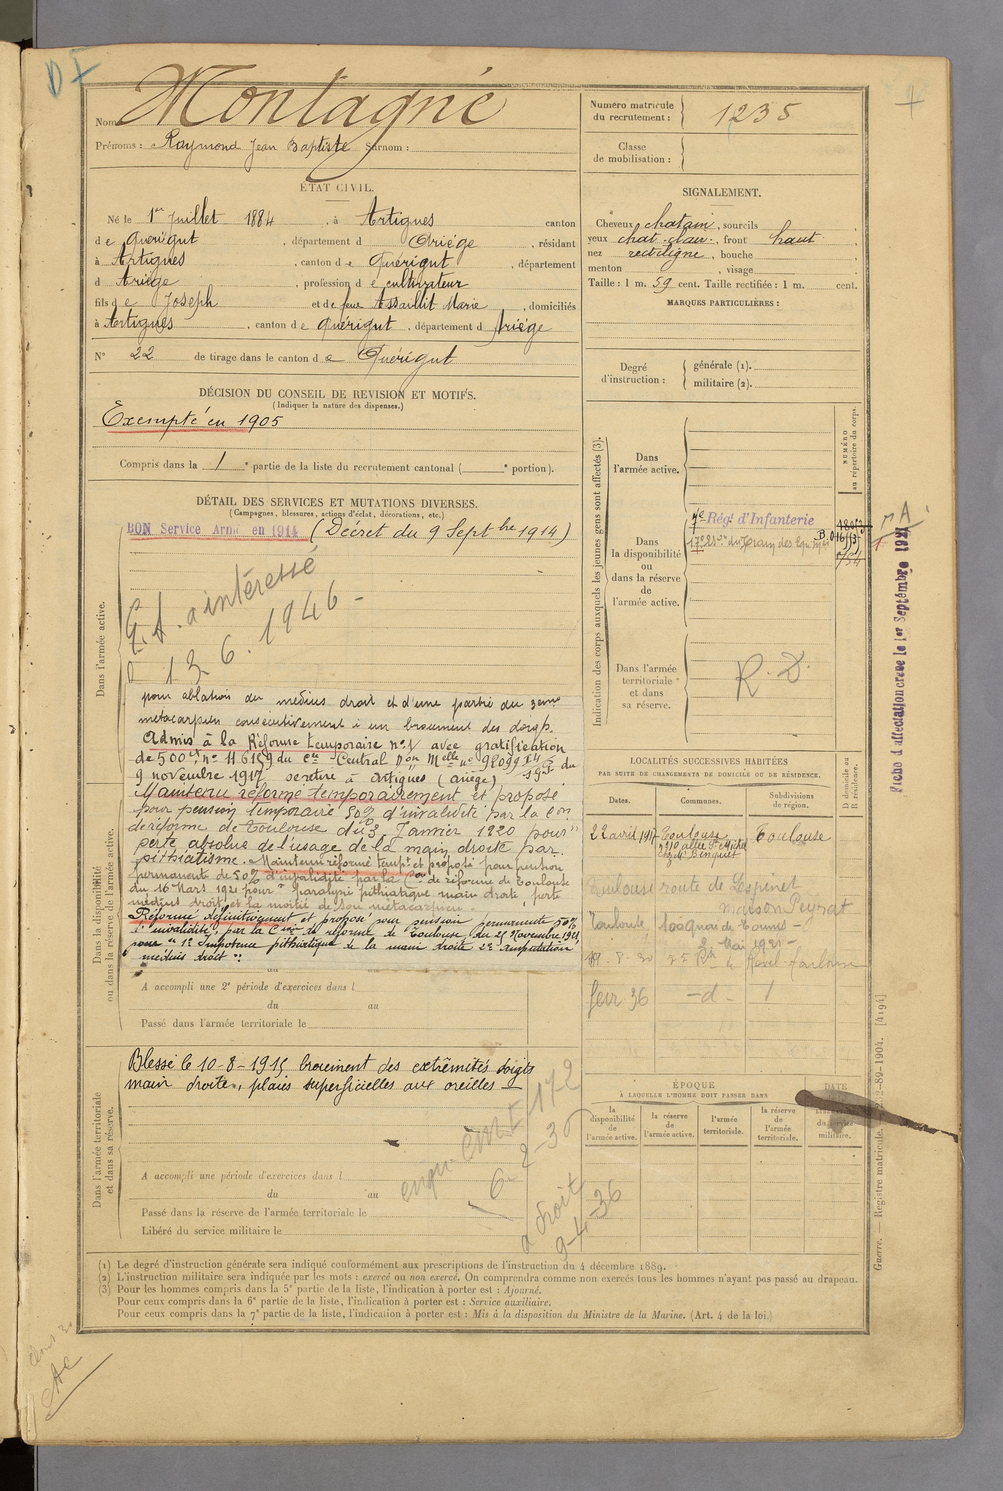 DF
Nom Montagné
Prénoms : Raymond Jean Baptiste Surnom :
Numéro matricule du recrutement : 1235
Classe de mobilisation :
ÉTAT CIVIL.
Né le 1er Juillet 1884, à Artigues canton
de Quérigut, département d Ariège, résidant
à Artigues, canton de Quérigut, département
d Ariège, profession de cultivateur
fils de Joseph et de feue Assaillit Marie, domiciliés
à Artigues, canton de Quérigut, département d Ariège
N° 22 de tirage dans le canton de Quérigut
SIGNALEMENT.
Cheveux chatain, sourcils
yeux chat. clair., front haut
nez rectiligne, bouche
menton, visage
Taille : 1 m. 59 cent. Taille rectifiée : 1 m. cent.
MARQUES PARTICULIÈRES :
Degré d'instruction : générale (1).
militaire (2).
DÉCISION DU CONSEIL DE REVISION ET MOTIFS.
(Indiquer la nature des dispenses.)
Exempté en 1905
Compris dans la 1e partie de la liste du recrutement cantonal ( e portion).
DÉTAIL DES SERVICES ET MUTATIONS DIVERSES.
(Campagnes, blessures, actions d'éclat, décorations, etc.)
Dans l'armée active.
BON Service Armé en 1914 (Décret du 9 Septbre 1914)
a intéressé
13 6. 1946 -
pour ablation du médius droit et d'une partie du 3eme
métacarpien consécutivement à un broiement des doigts.
Admis à la Réforme temporaire n°1 avec gratification
de 500
9 novembre 1917 se retire à Artigues (Ariège)
Maintenu réformé temporairement et proposé
pour pension temporaire 50% d'invalidité par la Con
de réforme de Toulouse du 3 Janvier 1920 pour "
perte absolue de l'usage de la main droite par
pithiatisme. Maintenu réformé tempt et proposé pour pension
permanente de 50% d'invalidité par la Con de réforme de Toulouse
du 16 Mars 1921 pour " paralysie pithiatique main droite, perte
médius droit et la moitié de son métacarpien
Réformé définitivement et proposé pour pension permanente 50%
d'invalidité, par la Cion de réforme de Toulouse, du 25 Novembre 1921,
pour " 1° Impotence pithiatique de la main droite 2° amputation
médius droit "
Dans la disponibilité ou dans la réserve de l'armée active.
A accompli une 2e période d'exercices dans l
du au
Passé dans l'armée territoriale le
Dans l'armée territoriale et dans sa réserve.
Blessé le 10-8-1915 broiement des extrêmités doigts
main droite, plaies superficielles aux oreilles
A accompli une période d'exercices dans l
du au
Passé dans la réserve de l'armée territoriale le
Libéré du service militaire le
6 2 36
à droit
9-4-36
Indication des corps auxquels les jeunes gens sont affectés (3).
NUMÉRO au répertoire du corps.
Dans l'armée active.
Dans la disponibilité ou dans la réserve de l'armée active.
7e Régt d'Infanterie
17e du Train des Eq.
Dans l'armée territoriale et dans sa réserve.
R. D.
Fiche d'affectation créée le 1er Septembre 1921
LOCALITÉS SUCCESSIVES HABITÉES
PAR SUITE DE CHANGEMENTS DE DOMICILE OU DE RÉSIDENCE.
Dates. Communes. Subdivisions de région. D domicile ou R résidence.
22 avril 1917 Toulouse Toulouse
Toulouse route de Lespinet
maison Peyrat
Toulouse 100 quai de Tounis -
2 Mai 1921 -
fevr 36 - d - 1
ÉPOQUE
À LAQUELLE L'HOMME DOIT PASSER DANS
DATE
la disponibilité de l'armée active. la réserve de l'armée active. l'armée territoriale. la réserve de l'armée territoriale. militaire.
Guerre. — Registre matricule. 2-89-1904. [4194]
(1) Le degré d'instruction générale sera indiqué conformément aux prescriptions de l'instruction du 4 décembre 1889.
(2) L'instruction militaire sera indiquée par les mots : exercé ou non exercé. On comprendra comme non exercés tous les hommes n'ayant pas passé au drapeau.
(3) Pour les hommes compris dans la 5e partie de la liste, l'indication à porter est : Ajourné.
Pour ceux compris dans la 6e partie de la liste, l'indication à porter est : Service auxiliaire.
Pour ceux compris dans la 7e partie de la liste, l'indication à porter est : Mis à la disposition du Ministre de la Marine. (Art. 4 de la loi.)